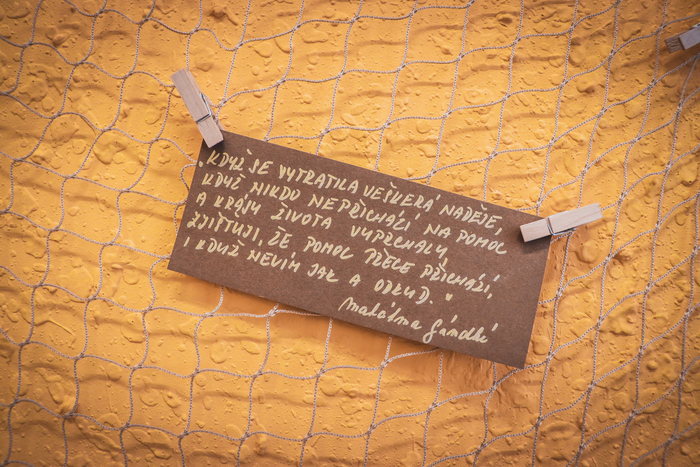 „KDYŽ SE VYTRATILA VEŠKERÁ NADĚJE,
KDYŽ NIKDO NEPŘICHÁZÍ NA POMOC
A KRÁSY ŽIVOTA VYPRCHALY,
ZJIŠŤUJI, ŽE POMOC PŘECE PŘICHÁZÍ,
I KDYŽ NEVÍM JAK A ODKUD."
Mahátma Gándhí